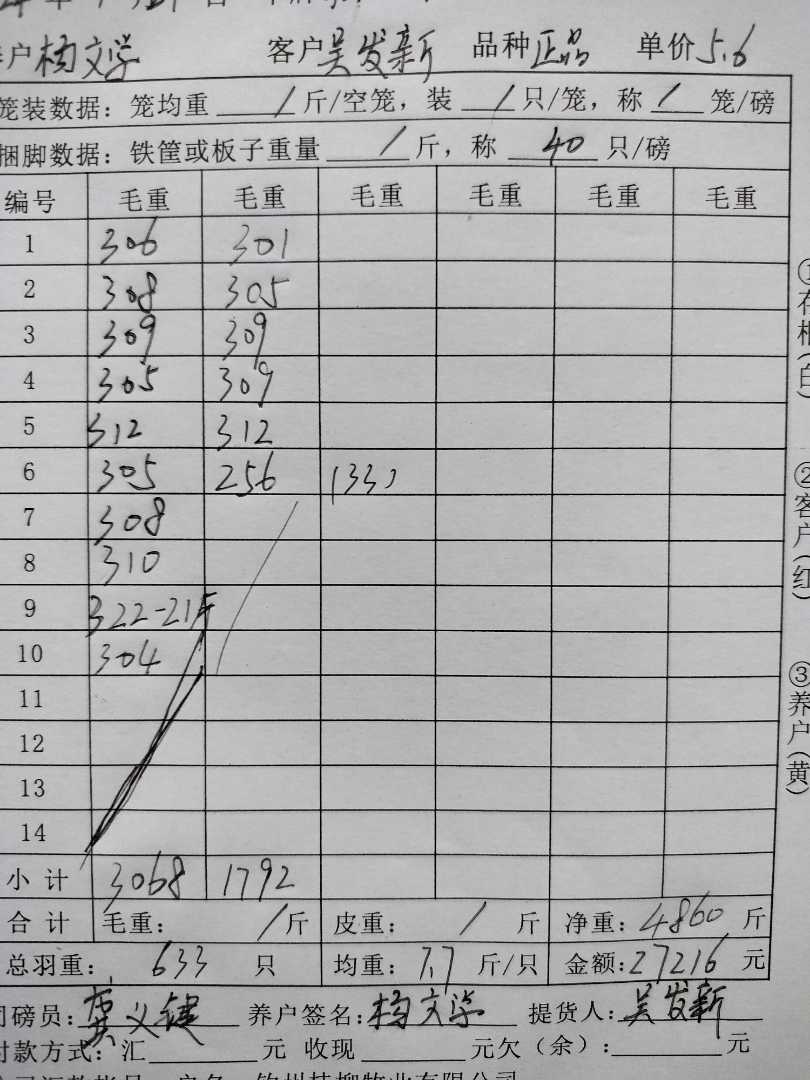 养户 杨文学 客户 吴发新 品种 正品 单价 5.6
笼装数据：笼均重 / 斤/空笼，装 / 只/笼，称 / 笼/磅
捆脚数据：铁筐或板子重量 / 斤，称 40 只/磅
编号 毛重 毛重 毛重 毛重 毛重 毛重
1 306 301
2 308 305
3 309 309
4 305 309
5 312 312
6 305 256 (33)
7 308
8 310
9 322-21斤
10 304
11
12
13
14
小 计 3068 1792
合 计 毛重： / 斤 皮重： / 斤 净重：4860 斤
总羽重： 633 只 均重：7.7 斤/只 金额：27216 元
司磅员： 义键 养户签名：杨文学 提货人：吴发新
付款方式：汇 元 收现 元欠（余）： 元
①存根（白）
②客户（红）
③养户（黄）